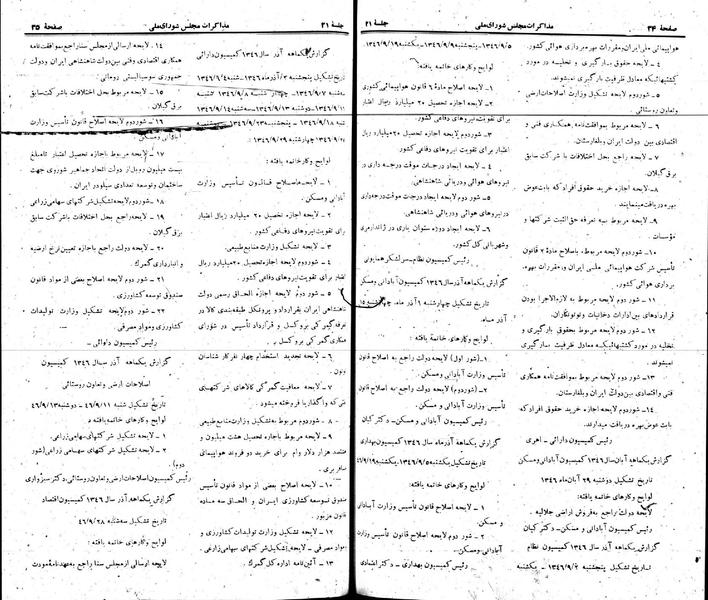 صفحهٔ ۳۴
مذاکرات مجلس شورای ملی
جلسهٔ ۲۱
هواپیمائی ملی ایران و مقررات بهره برداری هوائی کشور.
۴ - لایحه حقوق بارگیری و تخلیه در مورد
کشتیهائیکه معادل ظرفیت بارگیری نمیشوند.
۵ - شور دوم لایحه تشکیل وزارت اصلاحات ارضی
و تعاون روستائی.
۶ - لایحه مربوط بموافقت‌نامه همکاری فنی و
اقتصادی بین دولت ایران و بلغارستان.
۷ - لایحه راجع بحل اختلافات با شرکت سابق
برق گیلان.
۸ - لایحه اجازه خرید حقوق افراد که بابت عوض
بهره دریافت مینمایند.
۹ - لایحه مربوط به تعرفه حق اشتیت شرکتها و
مؤسسات.
۱۰ - شور دوم لایحه مربوط باصلاح مادهٔ ۷ قانون
تأسیس شرکت هواپیمائی ملی ایران و مقررات بهره
برداری هوائی کشور.
۱۱ - شور دوم لایحه مربوط به لازم‌الاجرا بودن
قراردادهای بین ادارات دخانیات و توتونکاران.
۱۲ - شور دوم لایحه مربوط بحقوق بارگیری و
تخلیه در مورد کشتیهائیکه معادل ظرفیت بارگیری
نمیشوند.
۱۳ - شور دوم لایحه مربوط بموافقت‌نامه همکاری
فنی و اقتصادی بین دولت ایران و بلغارستان.
۱۴ - شور دوم لایحه اجازه خرید حقوق افراد که
بابت عوض بهره دریافت میدارند.
رئیس کمیسیون دارائی -
گزارش یکماهه آبان سال ۱۳۴۶ کمیسیون آبادانی و مسکن
تاریخ تشکیل دوشنبه ۲۹ آبان ماه ۱۳۴۶
لوایح و کارهای خاتمه یافته:
لایحه دولت راجع به فروش اراضی جلالیه.
رئیس کمیسیون آبادانی و مسکن - دکتر کیان
گزارش یکماهه آذر سال ۱۳۴۶ کمیسیون نظام
تاریخ تشکیل پنجشنبه ۱۳۴۶/۹/۲ - یکشنبه
۱۳۴۶/۹/۵ - پنجشنبه ۱۳۴۶/۹/۹ - یکشنبه ۱۳۴۶/۹/۱۹
لوایح و کارهای خاتمه یافته:
۱ - لایحه اصلاح مادهٔ ۶ قانون هواپیمائی کشوری
۲ - لایحه اجازه تحصیل ۲۰ میلیارد ریال اعتبار
برای تقویت نیروهای دفاعی کشور.
۳ - شور دوم لایحه اجازه تحصیل ۲۰ میلیارد ریال
اعتبار برای تقویت نیروهای دفاعی کشور.
۴ - لایحه ایجاد درجات موقت درجه داری در
نیروهای هوائی و دریائی شاهنشاهی.
۵ - شور دوم لایحه ایجاد درجات موقت درجه‌داری
در نیروهای هوائی و دریائی شاهنشاهی.
۶ - لایحه ایجاد دوره ستوان یاری در ژاندارمری
و شهربانی کل کشور.
رئیس کمیسیون نظام - سرلشکر همایونی
گزارش یکماهه آذر سال ۱۳۴۶ کمیسیون آبادانی و مسکن
تاریخ تشکیل چهارشنبه ۱ آذر ماه - چهارشنبه ۱۵
آذر ماه.
لوایح و کارهای خاتمه یافته:
۱ - (شور اول) لایحه دولت راجع به اصلاح قانون
تأسیس وزارت آبادانی و مسکن.
۲ - (شور دوم) لایحه دولت راجع به اصلاح قانون
تأسیس وزارت آبادانی و مسکن.
رئیس کمیسیون آبادانی و مسکن - دکتر کیان
گزارش یکماهه آذر ماه سال ۱۳۴۶ کمیسیون بهداری
تاریخ تشکیل یکشنبه ۱۳۴۶/۹/۵ - یکشنبه ۴۶/۹/۱۹
لوایح و کارهای خاتمه یافته:
۱ - لایحه اصلاح قانون تأسیس وزارت آبادانی
و مسکن.
۲ - شور دوم لایحه اصلاح قانون تأسیس وزارت
آبادانی و مسکن.
رئیس کمیسیون بهداری - دکتر اعتمادی
جلسهٔ ۲۱
مذاکرات مجلس شورای ملی
صفحهٔ ۳۵
گزارش یکماهه آذر سال ۱۳۴۶ کمیسیون دارائی
تاریخ تشکیل پنجشنبه ۲ آذر ماه ۱۳۴۶ - شنبه ۱۳۴۶/۹/۴
سه‌شنبه ۱۳۴۶/۹/۷ چهارشنبه ۱۳۴۶/۹/۸ شنبه
۱۳۴۶/۹/۱۱ - دوشنبه ۱۳۴۶/۹/۱۳ - سه‌شنبه ۱۳۴۶/۹/۱۴
شنبه ۱۳۴۶/۹/۱۸ - پنجشنبه ۱۳۴۶/۹/۲۳ - سه‌شنبه
چهارشنبه ۱۳۴۶/۹/۲۹:
لوایح و کارهای خاتمه یافته:
۱ - لایحه اصلاح قانون تأسیس وزارت
آبادانی و مسکن.
۲ - لایحه اجازه تحصیل ۲۰ میلیارد ریال اعتبار
برای تقویت نیروهای دفاعی کشور.
۳ - لایحه تشکیل وزارت منابع طبیعی.
۴ - شور دوم لایحه اجازه تحصیل ۲۰ میلیارد ریال
اعتبار برای تقویت نیروهای دفاعی کشور.
۵ - شور دوم لایحه اجازه الحاق رسمی دولت
شاهنشاهی ایران بقرارداد و پروتکل طبقه‌بندی کالا در
تعرفه گمرکی بروکسل و قرارداد تأسیس در شورای
همکاری گمرکی بروکسل.
۶ - لایحه تجدید استخدام چهار نفر کارشناسان
۷ - لایحه معافیت گمرکی کالاهای شرکتهای
نفتی که واگذار یا فروخته میشود.
۸ - شور دوم مربوط به تشکیل وزارت منابع طبیعی
۹ - لایحه مربوط باجازه تحصیل هشت میلیون و
هفتصد هزار دلار وام برای خرید دو فروند هواپیمای
مسافربری.
۱۰ - لایحه اصلاح بعضی از مواد قانون تأسیس
صندوق توسعه کشاورزی ایران و الحاق سه ماده
قانون مزبور.
۱۱ - لایحه تشکیل وزارت تولیدات کشاورزی و
مواد مصرفی.
۱۲ - لایحه تشکیل شرکتهای سهامی زراعی.
۱۳ - آئین‌نامه اداره کل گمرک.
۱۴ - لایحه ارسالی از مجلس سنا راجع بموافقت‌نامه
همکاری اقتصادی و فنی بین دولت شاهنشاهی ایران و دولت
جمهوری سوسیالیستی رومانی.
۱۵ - لایحه مربوط بحل اختلافات با شرکت سابق
برق گیلان.
۱۶ - شور دوم لایحه اصلاح قانون تأسیس وزارت
آبادانی و مسکن.
۱۷ - لایحه مربوط باجازه تحصیل اعتبار تا مبلغ
بیست میلیون روبل از دولت اتحاد جماهیر شوروی جهت
ساختمان و توسعه تعدادی سیلو در ایران.
۱۸ - شور دوم لایحه تشکیل شرکتهای سهامی زراعی
۱۹ - لایحه راجع بحل اختلافات با شرکت سابق
برق گیلان.
۲۰ - لایحه دولت راجع باجازه تعیین نرخ ارضیه
و انبارداری گمرک.
۲۱ - شور دوم لایحه اصلاح بعضی از مواد قانون
صندوق توسعه کشاورزی.
۲۲ - شور دوم لایحه تشکیل وزارت تولیدات
کشاورزی و مواد مصرفی.
رئیس کمیسیون دارائی -
گزارش یکماهه آذر سال ۱۳۴۶ کمیسیون
اصلاحات ارضی و تعاون روستائی
تاریخ تشکیل شنبه ۴۶/۹/۱۱ - دوشنبه ۴۶/۹/۱۳
لوایح و کارهای خاتمه یافته:
۱ - لایحه تشکیل شرکتهای سهامی زراعی.
۲ - لایحه تشکیل شرکتهای سهامی زراعی (شور
دوم)
رئیس کمیسیون اصلاحات ارضی و تعاون روستائی - دکتر سبزواری
گزارش یکماهه آذر سال ۱۳۴۶ کمیسیون اقتصاد
تاریخ تشکیل سه‌شنبه ۴۶/۹/۲۸
لوایح و کارهای خاتمه یافته:
لایحه ارسالی از مجلس سنا راجع به عهدنامه مودت